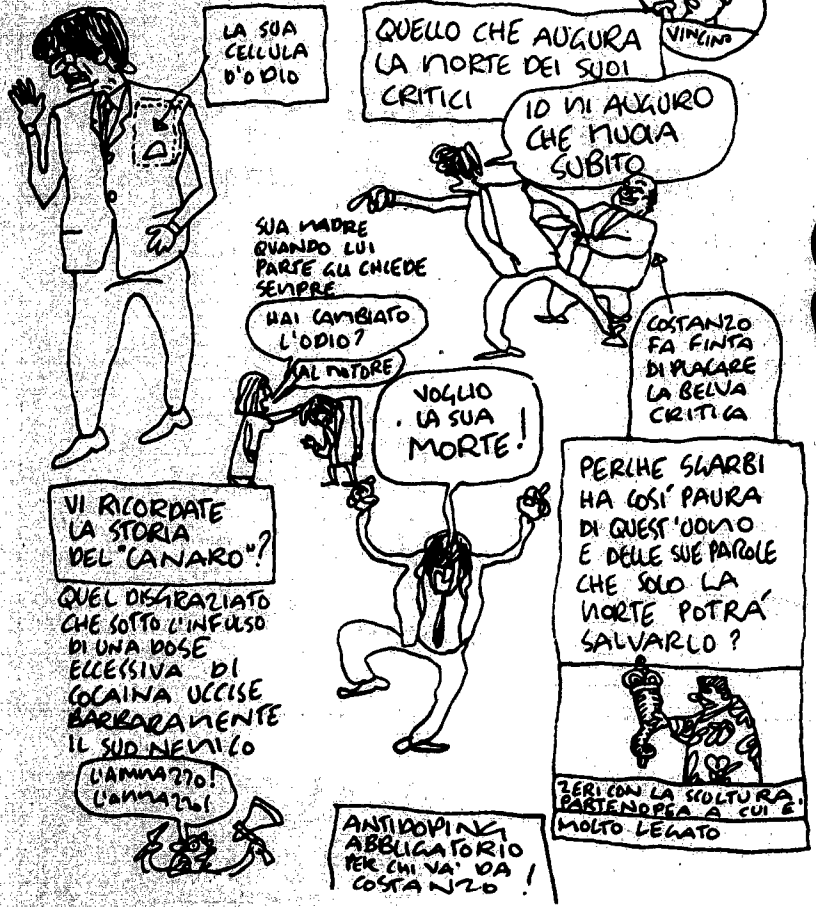 LA SUA
CELLULA
D'ODIO
QUELLO CHE AUGURA
LA MORTE DEI SUOI
CRITICI
VINCINO
IO MI AUGURO
CHE MUOIA
SUBITO
SUA MADRE
QUANDO LUI
PARTE GLI CHIEDE
SEMPRE
HAI CAMBIATO
L'ODIO?
AL MOTORE
COSTANZO
FA FINTA
DI PLACARE
LA BELVA
CRITICA
VOGLIO
LA SUA
MORTE!
PERCHE SGARBI
HA COSI' PAURA
DI QUEST'UOMO
E DELLE SUE PAROLE
CHE SOLO LA
MORTE POTRA'
SALVARLO?
VI RICORDATE
LA STORIA
DEL "CANARO"?
QUEL DISGRAZIATO
CHE SOTTO L'INFULSO
DI UNA DOSE
ECCESSIVA DI
COCAINA UCCISE
BARBARAMENTE
IL SUO NEMICO
L'AMMAZZO!
L'AMMAZZO!
ZERI CON LA SCULTURA
PARTENOPEA A CUI È
MOLTO LEGATO
ANTIDOPING
ABBLIGATORIO
PER CHI VA' DA
COSTANZO!